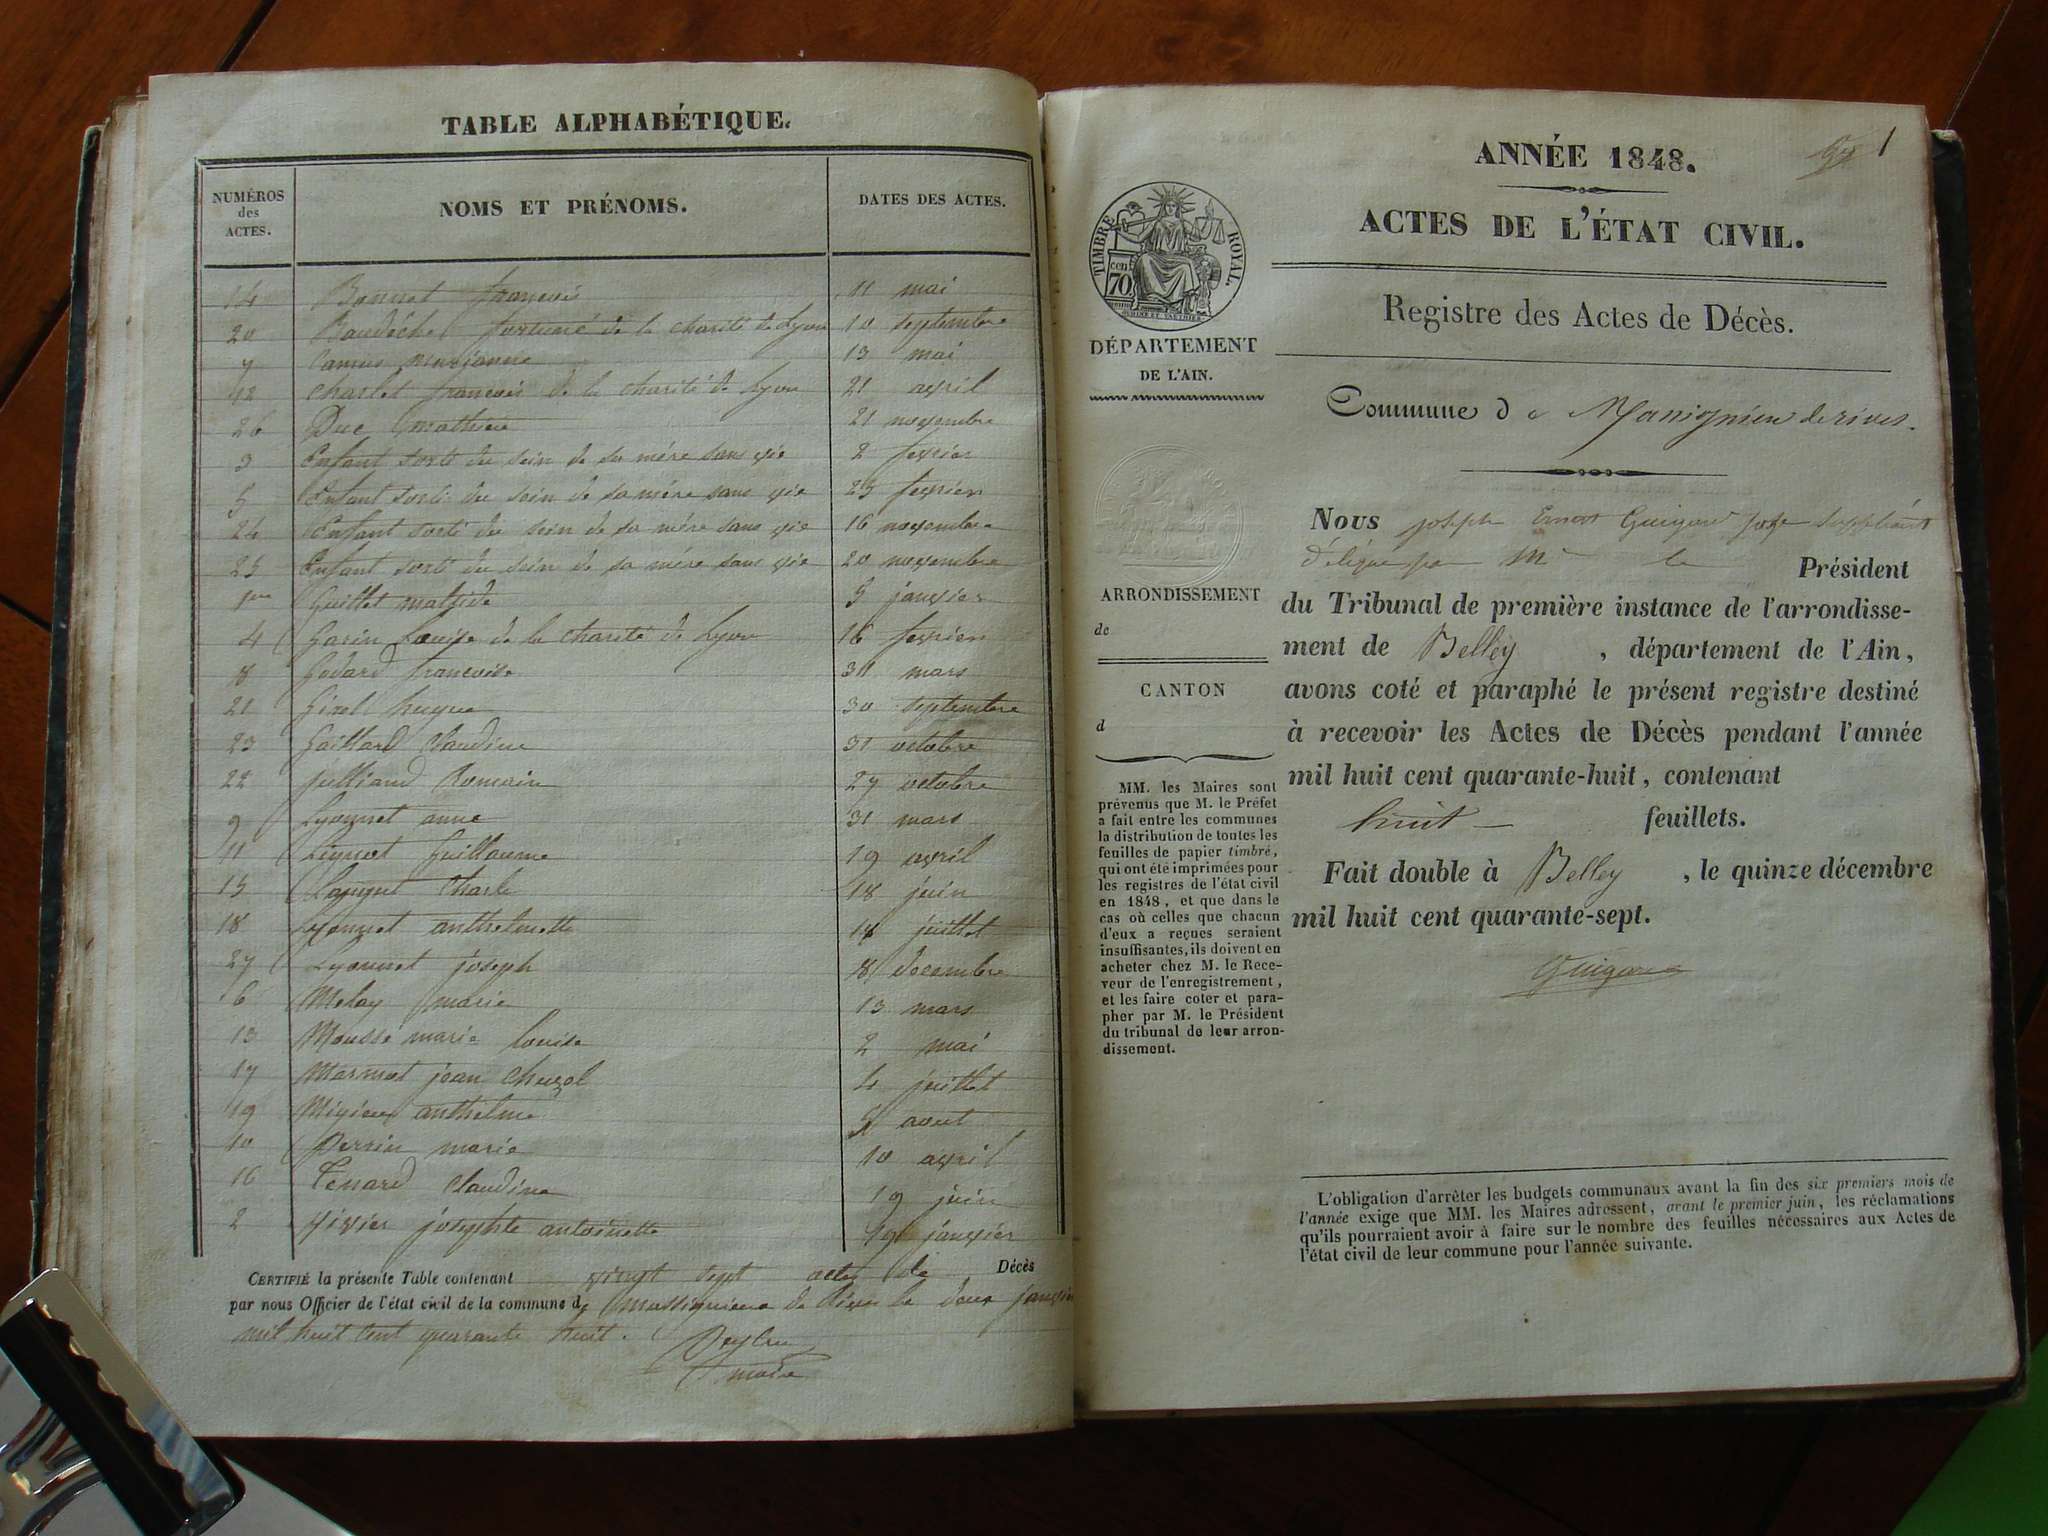 TABLE ALPHABÉTIQUE.
NUMÉROS des ACTES.
NOMS ET PRÉNOMS.
DATES DES ACTES.
14 Bonnet françois 11 mai
20 fortuné de la charité de Lyon 10 septembre
7 Camus marianne 13 mai
12 Charlet françois de la charité de Lyon 21 avril
26 Duc 21 novembre
3 Enfant sorti du sein de sa mére sans vie 2 fevrier
5 Enfant sorti du sein de sa mére sans vie 25 fevrier
24 Enfant sorti du sein de sa mére sans vie 16 novembre
25 Enfant sorti du sein de sa mére sans vie 20 novembre
1er Guillet 5 janvier
4 Garin Louise de la charité de Lyon 16 fevrier
8 Godard françoise 31 mars
21 30 septembre
23 Gaillard Claudine 31 octobre
22 Julliand Romain 27 octobre
9 Lyonnet anne 31 mars
11 Guillaume 19 avril
15 Charle 18 juin
18 Lyonnet anthelmette juillet
27 Lyonnet joseph 8 decembre
6 Melay marie 13 mars
13 Mousse marie louise 2 mai
17 Marmet jean 4 juillet
19 anthelme 5 aout
10 Perrin marie 10 avril
16 Tenard Claudine 19 juin
2 Vivier josephte antoinette 19 janvier
CERTIFIÉ la présente Table contenant vingt sept actes de Décès
par nous Officier de l'état civil de la commune de Massignieu de Rives le deux janvier
mil huit cent quarante huit.
maire
1
ANNÉE 1848.
ACTES DE L'ÉTAT CIVIL.
TIMBRE ROYAL.
cen
70
DÉPARTEMENT
DE L'AIN.
Registre des Actes de Décès.
Commune de Massignieu de rives.
Nous joseph Ernest Guigard juge suppléant
délégué par Mr le Président
du Tribunal de première instance de l'arrondisse-
ment de Belley, département de l'Ain,
avons coté et paraphé le présent registre destiné
à recevoir les Actes de Décès pendant l'année
mil huit cent quarante-huit, contenant
huit feuillets.
Fait double à Belley, le quinze décembre
mil huit cent quarante-sept.
ARRONDISSEMENT
de
CANTON
d
MM. les Maires sont
prévenus que M. le Préfet
a fait entre les communes
la distribution de toutes les
feuilles de papier timbré,
qui ont été imprimées pour
les registres de l'état civil
en 1848, et que dans le
cas où celles que chacun
d'eux a reçues seraient
insuffisantes, ils doivent en
acheter chez M. le Rece-
veur de l'enregistrement,
et les faire coter et para-
pher par M. le Président
du tribunal de leur arron-
dissement.
L'obligation d'arrêter les budgets communaux avant la fin des six premiers mois de
l'année exige que MM. les Maires adressent, avant le premier juin, les réclamations
qu'ils pourraient avoir à faire sur le nombre des feuilles nécessaires aux Actes de
l'état civil de leur commune pour l'année suivante.